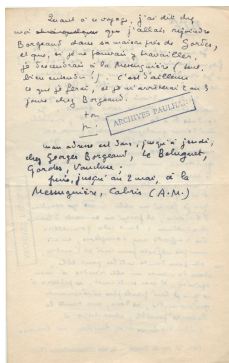 Quant à ce voyage, j'ai dit chez
moi que j'allais rejoindre
Borgeaud dans sa maison près de Gordes,
et que, si je ne pouvais y travailler,
je descendrais à la Messuguière (seul,
bien entendu !). C'est d'ailleurs
ce que je ferai, et je m'arrêterai 2 ou 3
jours chez Borgeaud.
ton
ARCHIVES PAULHAN
mon adresse est donc, jusqu'à jeudi,
chez Georges Borgeaud, Le
Gordes, Vaucluse.
puis, jusqu'au 2 mai, à la
Messuguière, Cabris (A.M.)